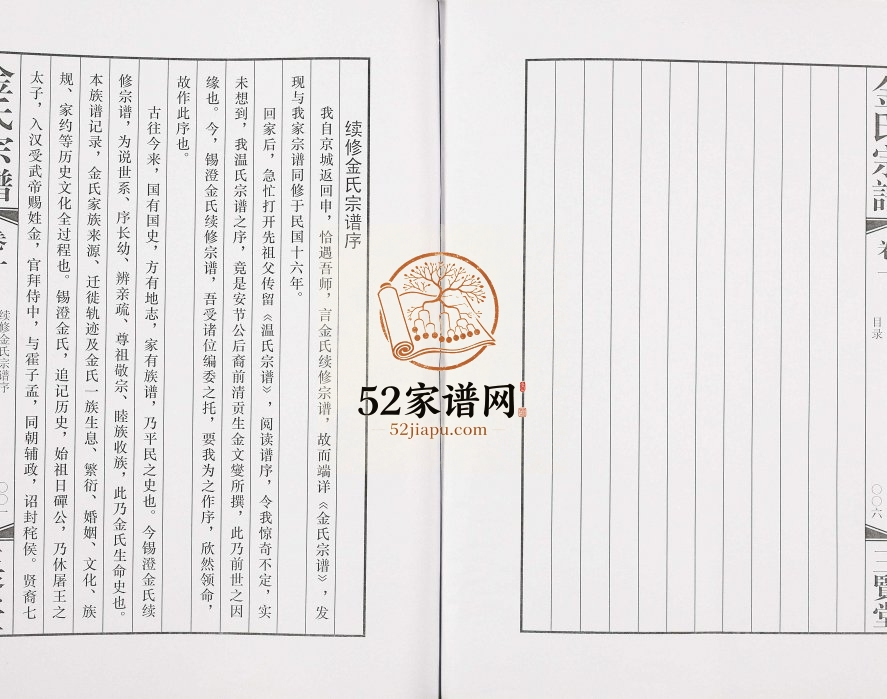 金氏宗譜
目录
〇〇六
三賢堂
续修金氏宗谱序
我自京城返回申，恰遇吾师，言金氏续修宗谱，故而端详《金氏宗谱》，发
现与我家宗谱同修于民国十六年。
回家后，急忙打开先祖父传留《温氏宗谱》，阅读谱序，令我惊奇不定，实
未想到，我温氏宗谱之序，竟是安节公后裔前清贡生金文燮所撰，此乃前世之因
缘也。今，锡澄金氏续修宗谱，吾受诸位编委之托，要我为之作序，欣然领命，
故作此序也。
古往今来，国有国史，方有地志，家有族谱，乃平民之史也。今锡澄金氏续
修宗谱，为说世系、序长幼、辨亲疏、尊祖敬宗、睦族收族，此乃金氏生命史也。
本族谱记录，金氏家族来源、迁徙轨迹及金氏一族生息、繁衍、婚姻、文化、族
规、家约等历史文化全过程也。锡澄金氏，追记历史，始祖日磾公，乃休屠王之
太子，入汉受武帝赐姓金，官拜侍中，与霍子孟，同朝辅政，诏封秺侯。贤裔七
金氏宗譜
续修金氏宗谱序
52家谱网
52jiapu.com